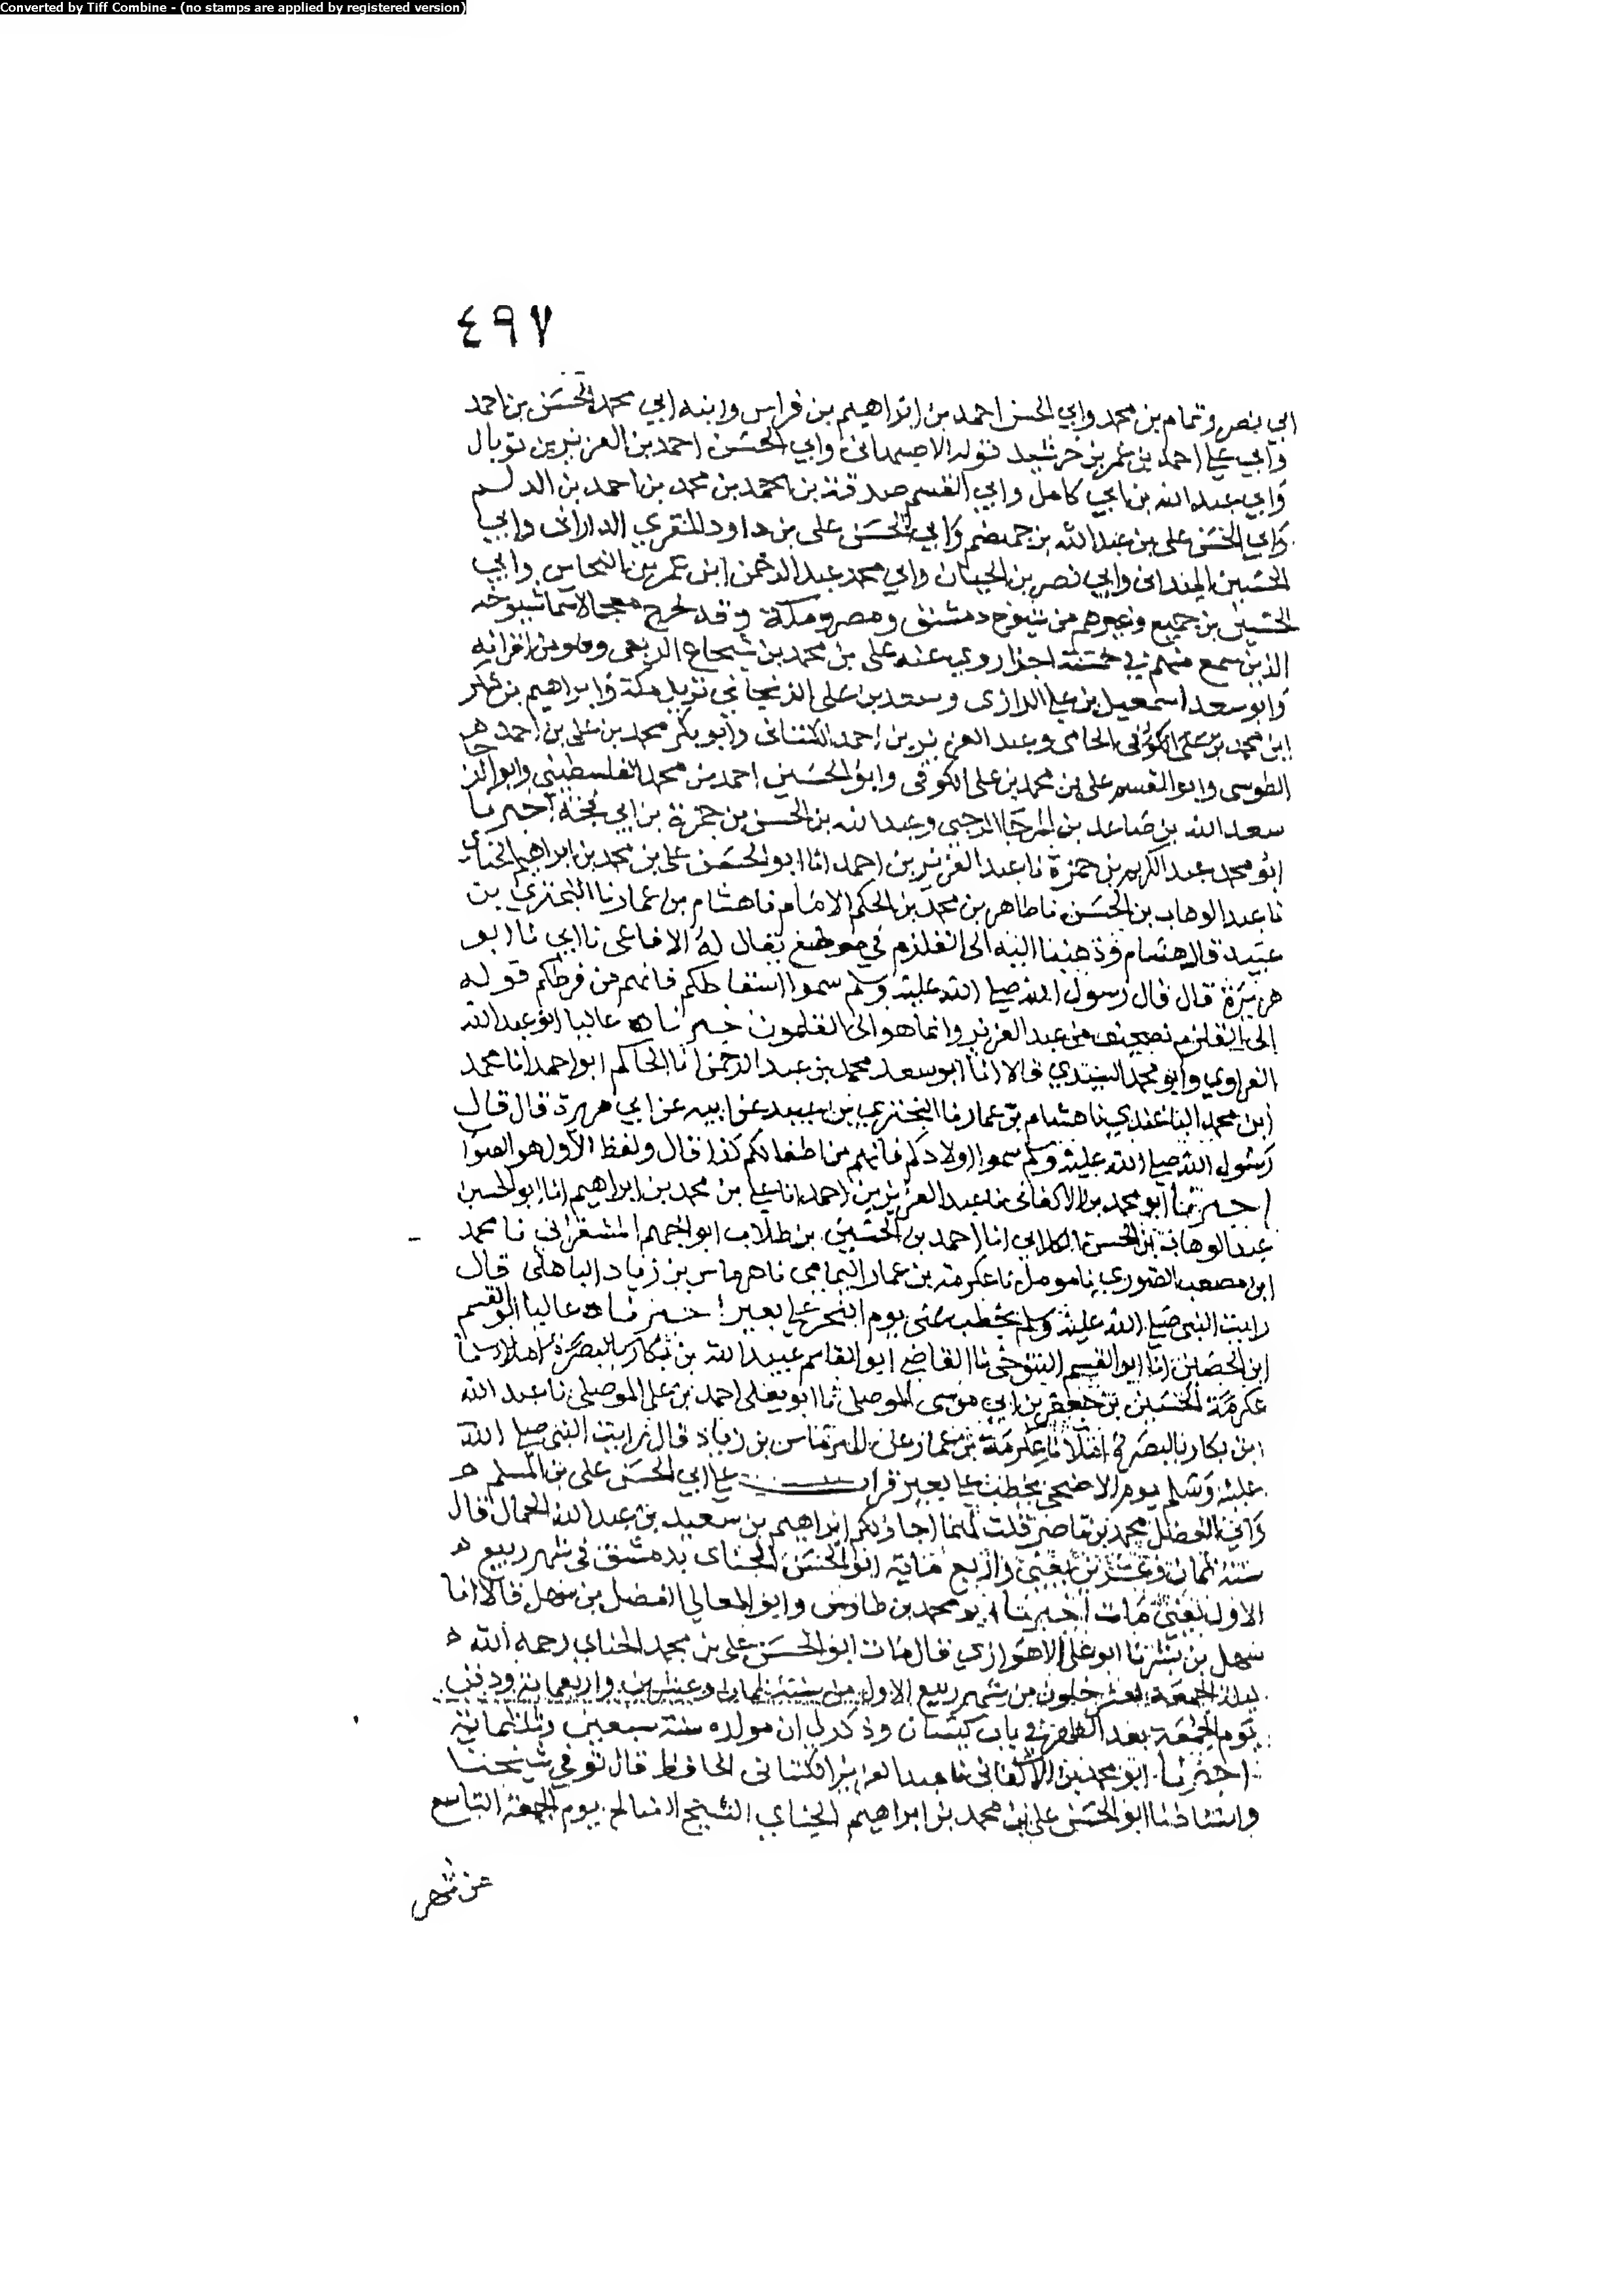 Converted by Tiff Combine - (no stamps are applied by registered version)
٤٩٧
ابي نصر وتمام بن محمد وابي الحسن احمد بن ابراهيم بن فراس وابنه ابي محمد الحسن بن احمد
وابي علي احمد بن عمر بن خرشيد قوله الاصبهاني وابي الحسن احمد بن العزيز بن ثوبال
وابي عبد الله بن ابي كامل وابي القسم صدقة بن محمد بن محمد بن احمد بن الدلم
وابي الحسن علي بن عبد الله بن جهضم وابي الحسن علي بن داود المقري الداراني وابي
الحسين الميداني وابي نصر بن الجبان وابي محمد عبد الرحمن ابن عمر بن النحاس وابي
الحسين بن جميع وغيرهم من شيوخ دمشق ومصر ومكة وقد خرج معجما لاسما شيوخه
الذين سمع منهم في خمسة اجزا روي عنه علي بن محمد بن شجاع الربعي وهو من اقرانه
وابو سعد اسمعيل بن علي الرازي وسعد بن علي الزنجاني نزيل مكة وابراهيم بن شكر
ابن محمد بن علي الحامي وعبد العزيز بن احمد الكتاني وابو بكر محمد بن علي بن احمد
الطوسي وابو القسم علي بن محمد بن علي الكوفي وابو الحسين احمد بن محمد الفلسطيني وابو الرجا
سعد الله بن صاعد بن المرجا الرحبي وعبد الله بن الحسن بن حمزة بن ابي فجة اخبرنا
ابو محمد عبد الكريم بن حمزة نا عبد العزيز بن احمد انا ابو الحسن علي بن محمد بن ابراهيم الحناي
نا عبد الوهاب بن الحسن نا طاهر بن محمد بن الحكم الامام نا هشام بن عمار نا البختري بن
عبيد قال هشام وذهبنا اليه الى القلزم في موضع يقال له الافاعي نا ابي نا ابو
هريرة قال قال رسول الله صلى الله عليه وسلم سموا اسقاطكم فانهم من فرطكم قوله
الى القلزم تصحيف من عبد العزيز وانما هو الى القلمون اخبرناه عاليا ابو عبد الله
الفراوي وابو محمد السيدي قالا انا ابو سعد محمد بن عبد الرحمن انا الحاكم ابو احمد انا محمد
ابن محمد الباغندي نا هشام بن عمار نا البختري بن عبيد عن ابيه عن ابي هريرة قال قال
رسول الله صلى الله عليه وسلم سموا اولادكم فانهم من اطفالكم كذا قال ولفظ الاول هو الصوا
اخبرنا ابو محمد بن الاكفاني نا عبد العزيز بن احمد انا علي بن محمد بن ابراهيم انا ابو الحسين
عبد الوهاب بن الحسن الكلابي انا احمد بن الحسين بن طلاب ابو الجهم المشغراني نا محمد
ابن مصعب الصوري نا مومل نا عكرمة بن عمار اليمامي نا هرماس بن زياد الباهلي قال
رايت النبي صلى الله عليه وسلم يخطب بمنى يوم النحر على بعير اخبرناه عاليا ابو القسم
ابن الحصين انا ابو القسم التنوخي نا القاضي ابو القاسم عبيد الله بن بكار بالبصرة املا
عكرمة الحسين بن جعفر بن ابي موسى الموصلي نا ابو يعلى احمد بن علي الموصلي نا عبد الله
ابن بكار بالبصرة املا نا عكرمة بن عمار عن الهرماس بن زياد قال رايت النبي صلى الله
عليه وسلم يوم الاضحى يخطب على بعير قرات على ابي الحسن علي بن المسلم
وابي الفضل محمد بن ناصر قلت لهما اجاز لكم ابراهيم بن سعيد بن عبد الله الحبال قال
سنة ثمان وعشرين يعني واربع ماية ابو الحسن الحناي بدمشق في شهر ربيع
الاول يعني مات اخبرنا ابو محمد بن طاوس وابو المعالي الفضل بن سهل قالا انا
سهل بن بشر نا ابو علي الاهوازي قال مات ابو الحسن علي بن محمد الحناي رحمه الله
ليلة الجمعة لعشر خلون من شهر ربيع الاول من سنة ثمان وعشرين واربعماية ودفن
يوم الجمعة بعد الظهر في باب كيسان وذكر لي ان مولده سنة سبعين وثلثماية
اخبرنا ابو محمد بن الاكفاني نا عبد العزيز الكتاني الحافظ قال توفي شيخنا
واستاذنا ابو الحسن علي بن محمد بن ابراهيم الحناي الشيخ الصالح يوم الجمعة التاسع
من شهر